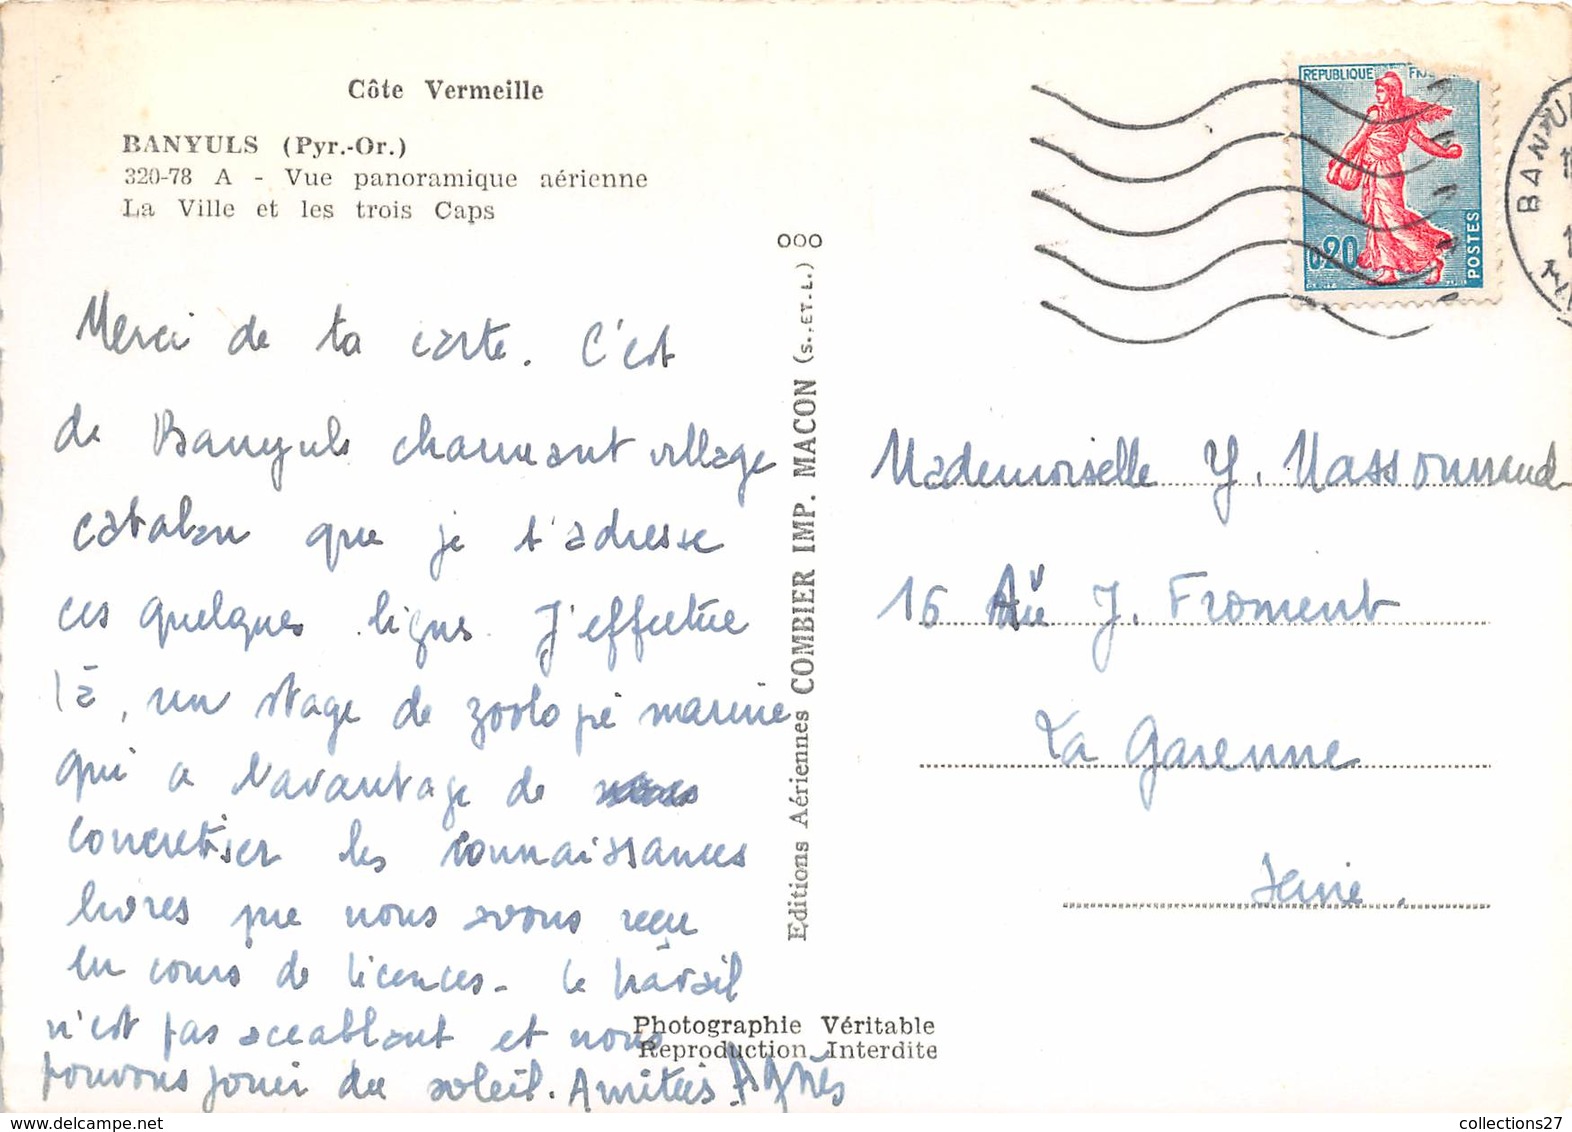 Côte Vermeille
BANYULS (Pyr.-Or.)
320-78 A - Vue panoramique aérienne
La Ville et les trois Caps
Merci de ta carte. C'est
de Banyuls charmant village
catalan que je t'adresse
ces quelques lignes. J'effectue
là, un stage de zoologie marine
qui a l'avantage de
concretiser les connaissances
livres que nous avons reçu
en cours de licences - Le travail
n'est pas accablant et nous
pouvons jouir du soleil. Amitiés Agnès
Editions Aériennes COMBIER IMP. MACON (S.-ET-L.) OOO
Photographie Véritable
Reproduction Interdite
REPUBLIQUE
0,20
POSTES
BANYU
Mademoiselle Y. Massonnaud
16 Av J. Froment
La Garenne
Seine.
collections27